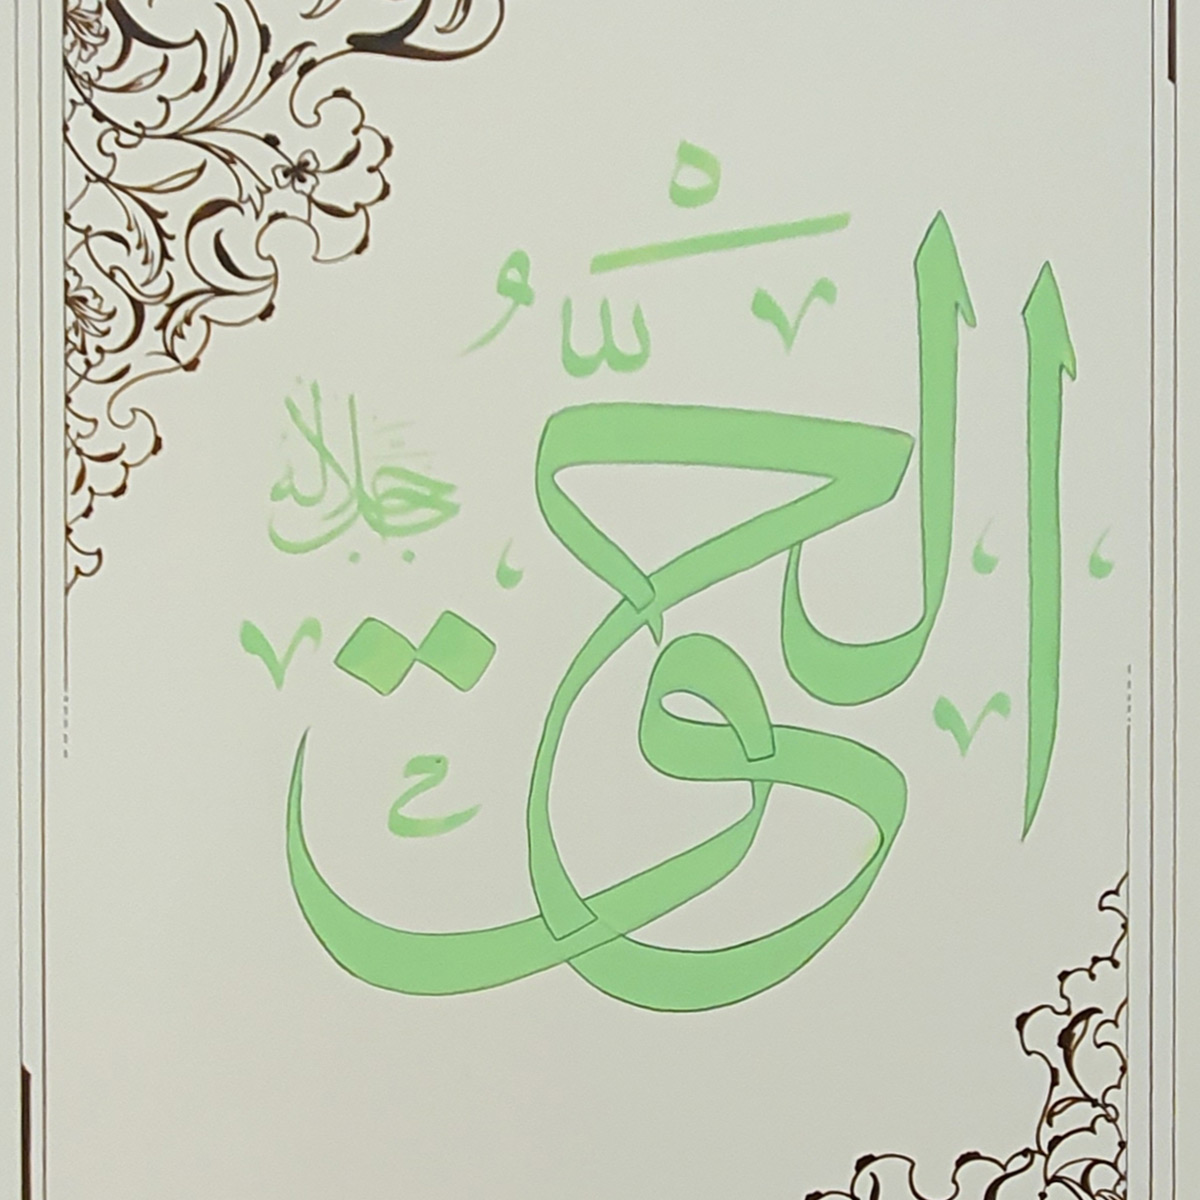 الحقُّ
جل جلاله